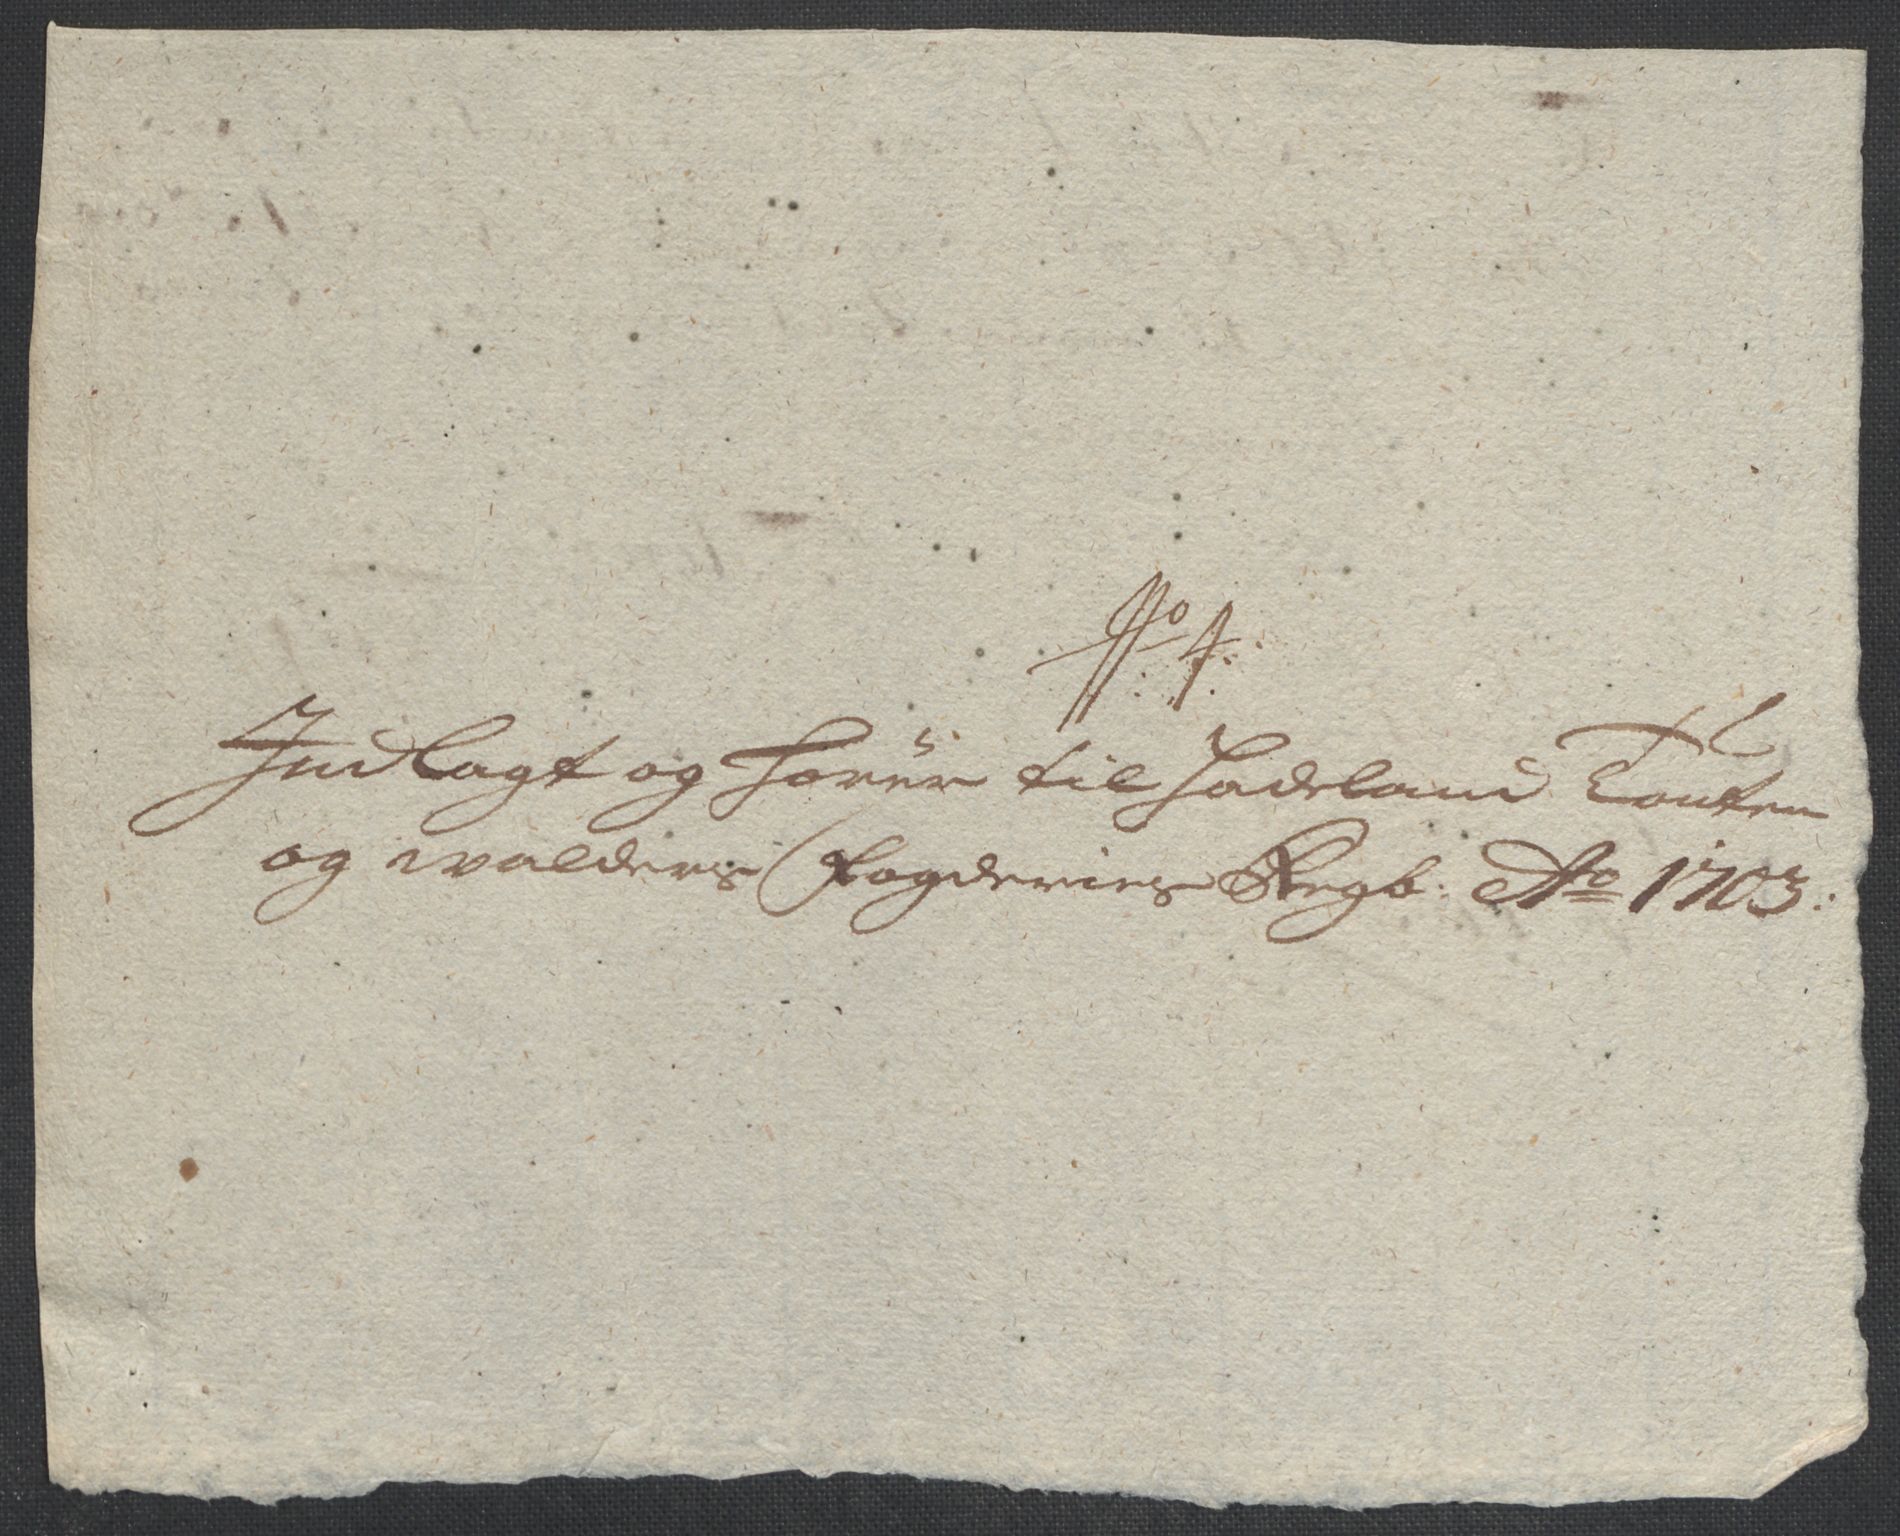 No 4.
Indlagt og hörer til Hadeland Touten
og walders fogderies Regb: Ao 1703: